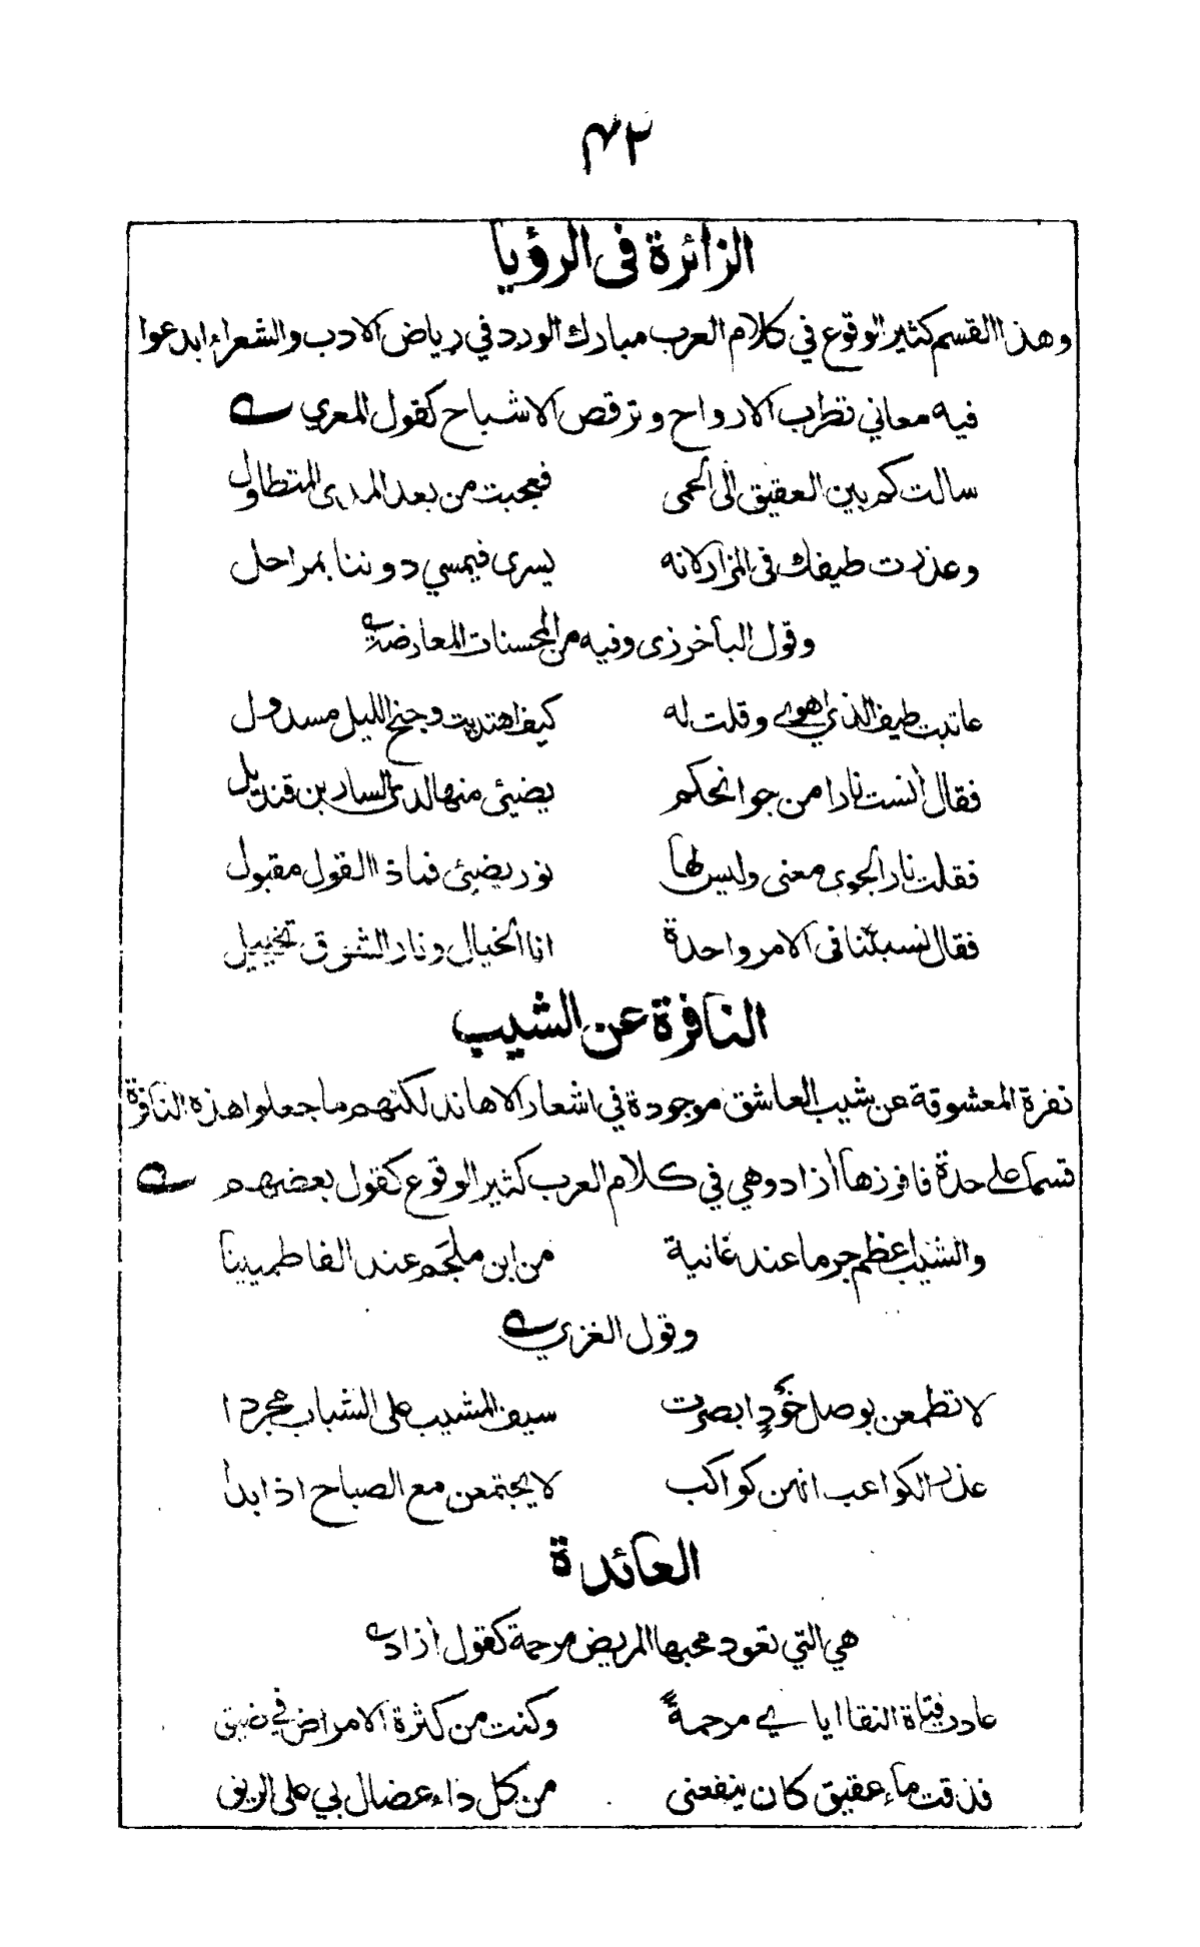 ۴۲
الزائرة فى الرؤيا
وهذا القسم كثير الوقوع في كلام العرب مبارك الورد في رياض الادب والشعراء ابدعوا
فيه معاني تطرب الارواح وترقص الاشباح كقول المعري ے
سالت كم بين العقيق الى الحمى فعجبت من بعد المدى المتطاول
وعذرت طيفك فى المزار لانه يسرى فيمسي دوننا بمراحل
وقول الباخرزى وفيه من المحسنات المعارضة ے
عاتبت طيف الذي اهوى وقلت له كيف اهتديت وجنح الليل مسدول
فقال أنست نارا من جوانحكم يضيئ منها لدى السارين قنديل
فقلت نار الجوى معنى وليس لها نور يضيئ فماذا القول مقبول
فقال نسبتنا فى الامر واحدة انا الخيال ونار الشوق تخييل
النافرة عن الشيب
نفرة المعشوقة عن شيب العاشق موجودة في اشعار الاهاند لكنهم ما جعلوا هذه النافرة
قسما على حدة فافرزها أزاد وهي في كلام العرب كثير الوقوع كقول بعضهم ے
والشيب اعظم جرما عند غانية من ابن ملجم عند الفاطميينا
وقول الغزي ے
لا تطمعن بوصل خَودٍ ابصرت سيف المشيب على الشباب مجردا
عذر الكواعب انهن كواكب لا يجتمعن مع الصباح اذا بدا
العائدة
هي التي تعود محبها المريض مرحمة كقول أزاد ے
عادت فتاة النقا اياي مرحمةً وكنت من كثرة الامراض في ضيق
فذقت ماء عقيق كان ينفعنى من كل داء عضال بي على الريق